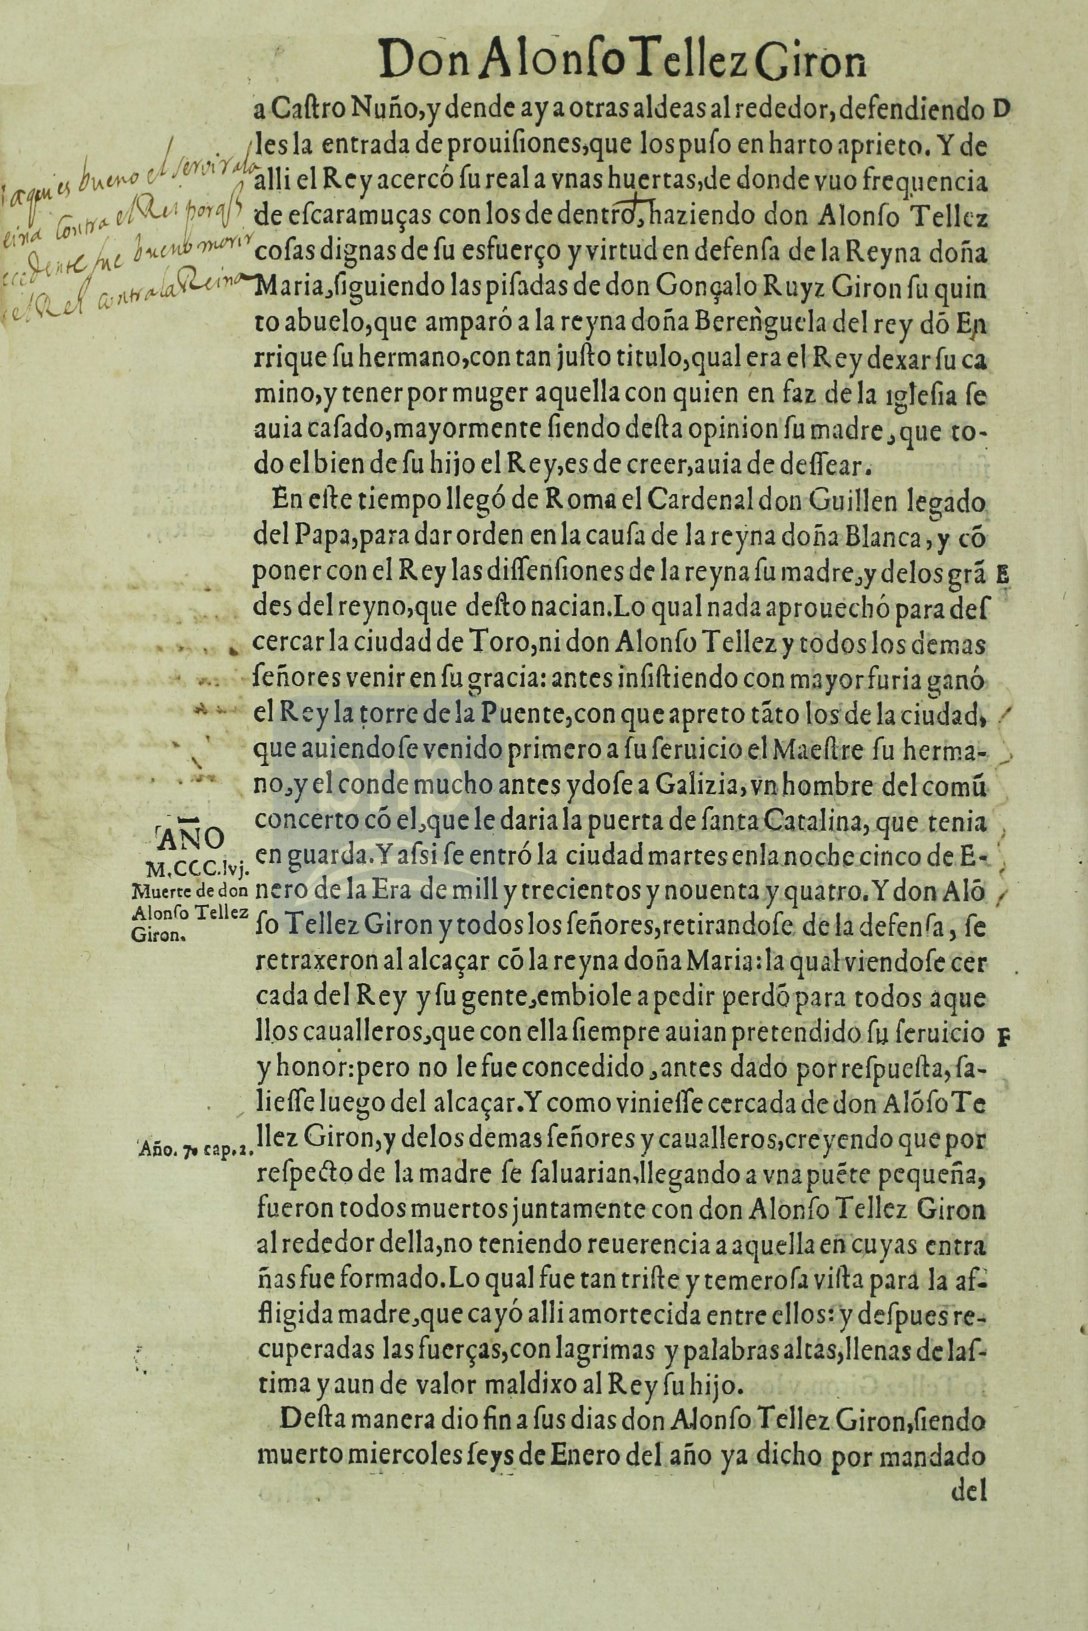 Don Alonſo Tellez Giron
a Caſtro Nuño, y dende ay a otras aldeas al rededor, defendiendo D
les la entrada de prouiſiones, que los puſo en harto aprieto. Y de
alli el Rey acercó ſu real a vnas huertas, de donde vuo frequencia
de eſcaramuças con los de dentro, haziendo don Alonſo Tellez
coſas dignas de ſu esfuerço y virtud en defenſa de la Reyna doña
Maria, ſiguiendo las piſadas de don Gonçalo Ruyz Giron ſu quin
to abuelo, que amparó a la reyna doña Berenguela del rey dõ En
rrique ſu hermano, con tan juſto titulo, qual era el Rey dexar ſu ca
mino, y tener por muger aquella con quien en faz de la igleſia ſe
auia caſado, mayormente ſiendo deſta opinion ſu madre, que to-
do el bien de ſu hijo el Rey, es de creer, auia de deſſear.
En eſte tiempo llegó de Roma el Cardenal don Guillen legado
del Papa, para dar orden en la cauſa de la reyna doña Blanca, y cõ
poner con el Rey las diſſenſiones de la reyna ſu madre, y delos grã E
des del reyno, que deſto nacian. Lo qual nada aprouechó para deſ
cercar la ciudad de Toro, ni don Alonſo Tellez y todos los demas
ſeñores venir en ſu gracia: antes inſiſtiendo con mayor furia ganó
el Rey la torre de la Puente, con que apreto tãto los de la ciudad,
que auiendoſe venido primero a ſu ſeruicio el Maeſtre ſu herma-
no, y el conde mucho antes ydoſe a Galizia, vn hombre del comũ
concerto cõ el, que le daria la puerta de ſanta Catalina, que tenia
en guarda. Y aſsi ſe entró la ciudad martes enla noche cinco de E-
nero de la Era de mill y trecientos y nouenta y quatro. Y don Alõ
ſo Tellez Giron y todos los ſeñores, retirandoſe de la defenſa, ſe
retraxeron al alcaçar cõ la reyna doña Maria: la qual viendoſe cer
cada del Rey y ſu gente, embiole a pedir perdõ para todos aque
llos caualleros, que con ella ſiempre auian pretendido ſu ſeruicio F
y honor: pero no le fue concedido, antes dado por reſpueſta, ſa-
lieſſe luego del alcaçar. Y como vinieſſe cercada de don Alõſo Te
llez Giron, y delos demas ſeñores y caualleros, creyendo que por
reſpecto de la madre ſe ſaluarian, llegando a vna puẽte pequeña,
fueron todos muertos juntamente con don Alonſo Tellez Giron
al rededor della, no teniendo reuerencia a aquella en cuyas entra
ñas fue formado. Lo qual fue tan triſte y temeroſa viſta para la af-
fligida madre, que cayó alli amortecida entre ellos: y deſpues re-
cuperadas las fuerças, con lagrimas y palabras altas, llenas de laſ-
tima y aun de valor maldixo al Rey ſu hijo.
Deſta manera dio fin a ſus dias don Alonſo Tellez Giron, ſiendo
muerto miercoles ſeys de Enero del año ya dicho por mandado
del
aqui es bueno el servir ala
contra el Rei
fue bueno morir
el Rei contra la Reina
AÑO
M.CCC.lvj.
Muerte de don
Alonſo Tellez
Giron.
Año. 7. cap. 2.